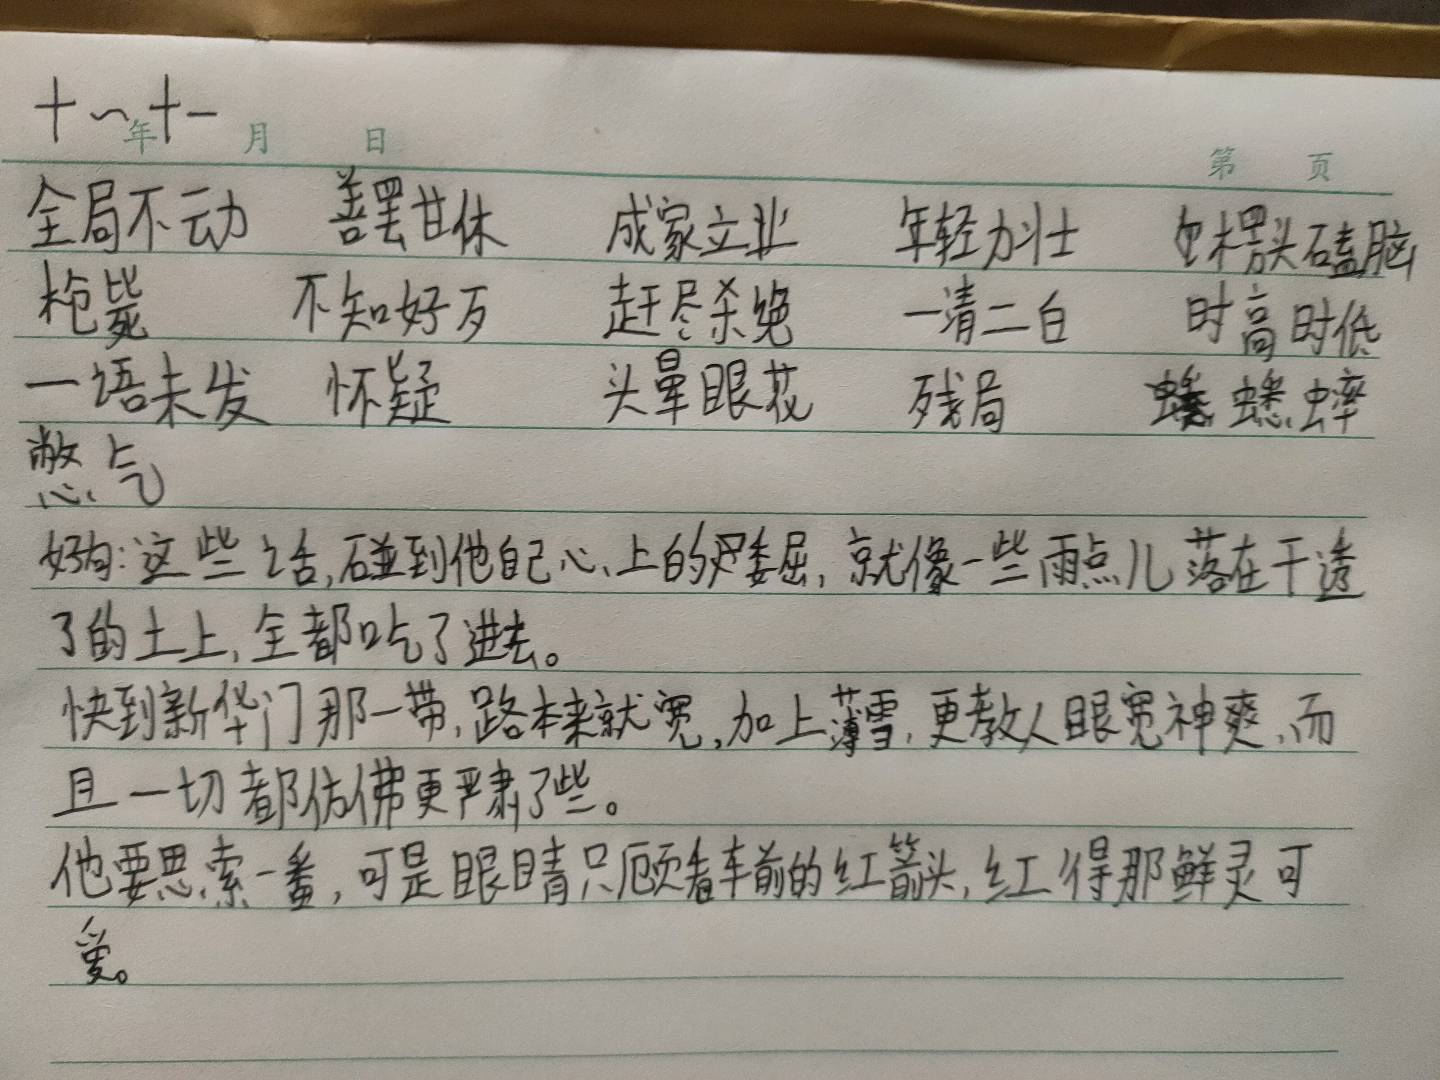 十~十一
年 月 日
第 页
全局不动 善罢甘休 成家立业 年轻力壮 愣头磕脑
枪毙 不知好歹 赶尽杀绝 一清二白 时高时低
一语未发 怀疑 头晕眼花 残局 蟋蟀
憋气
好句:这些话,碰到他自己心上的委屈,就像一些雨点儿落在干透
了的土上,全都吃了进去。
快到新华门那一带,路本来就宽,加上薄雪,更教人眼宽神爽,而
且一切都仿佛更严肃了些。
他要思索一番,可是眼睛只顾看车前的红箭头,红得那鲜灵可
爱。